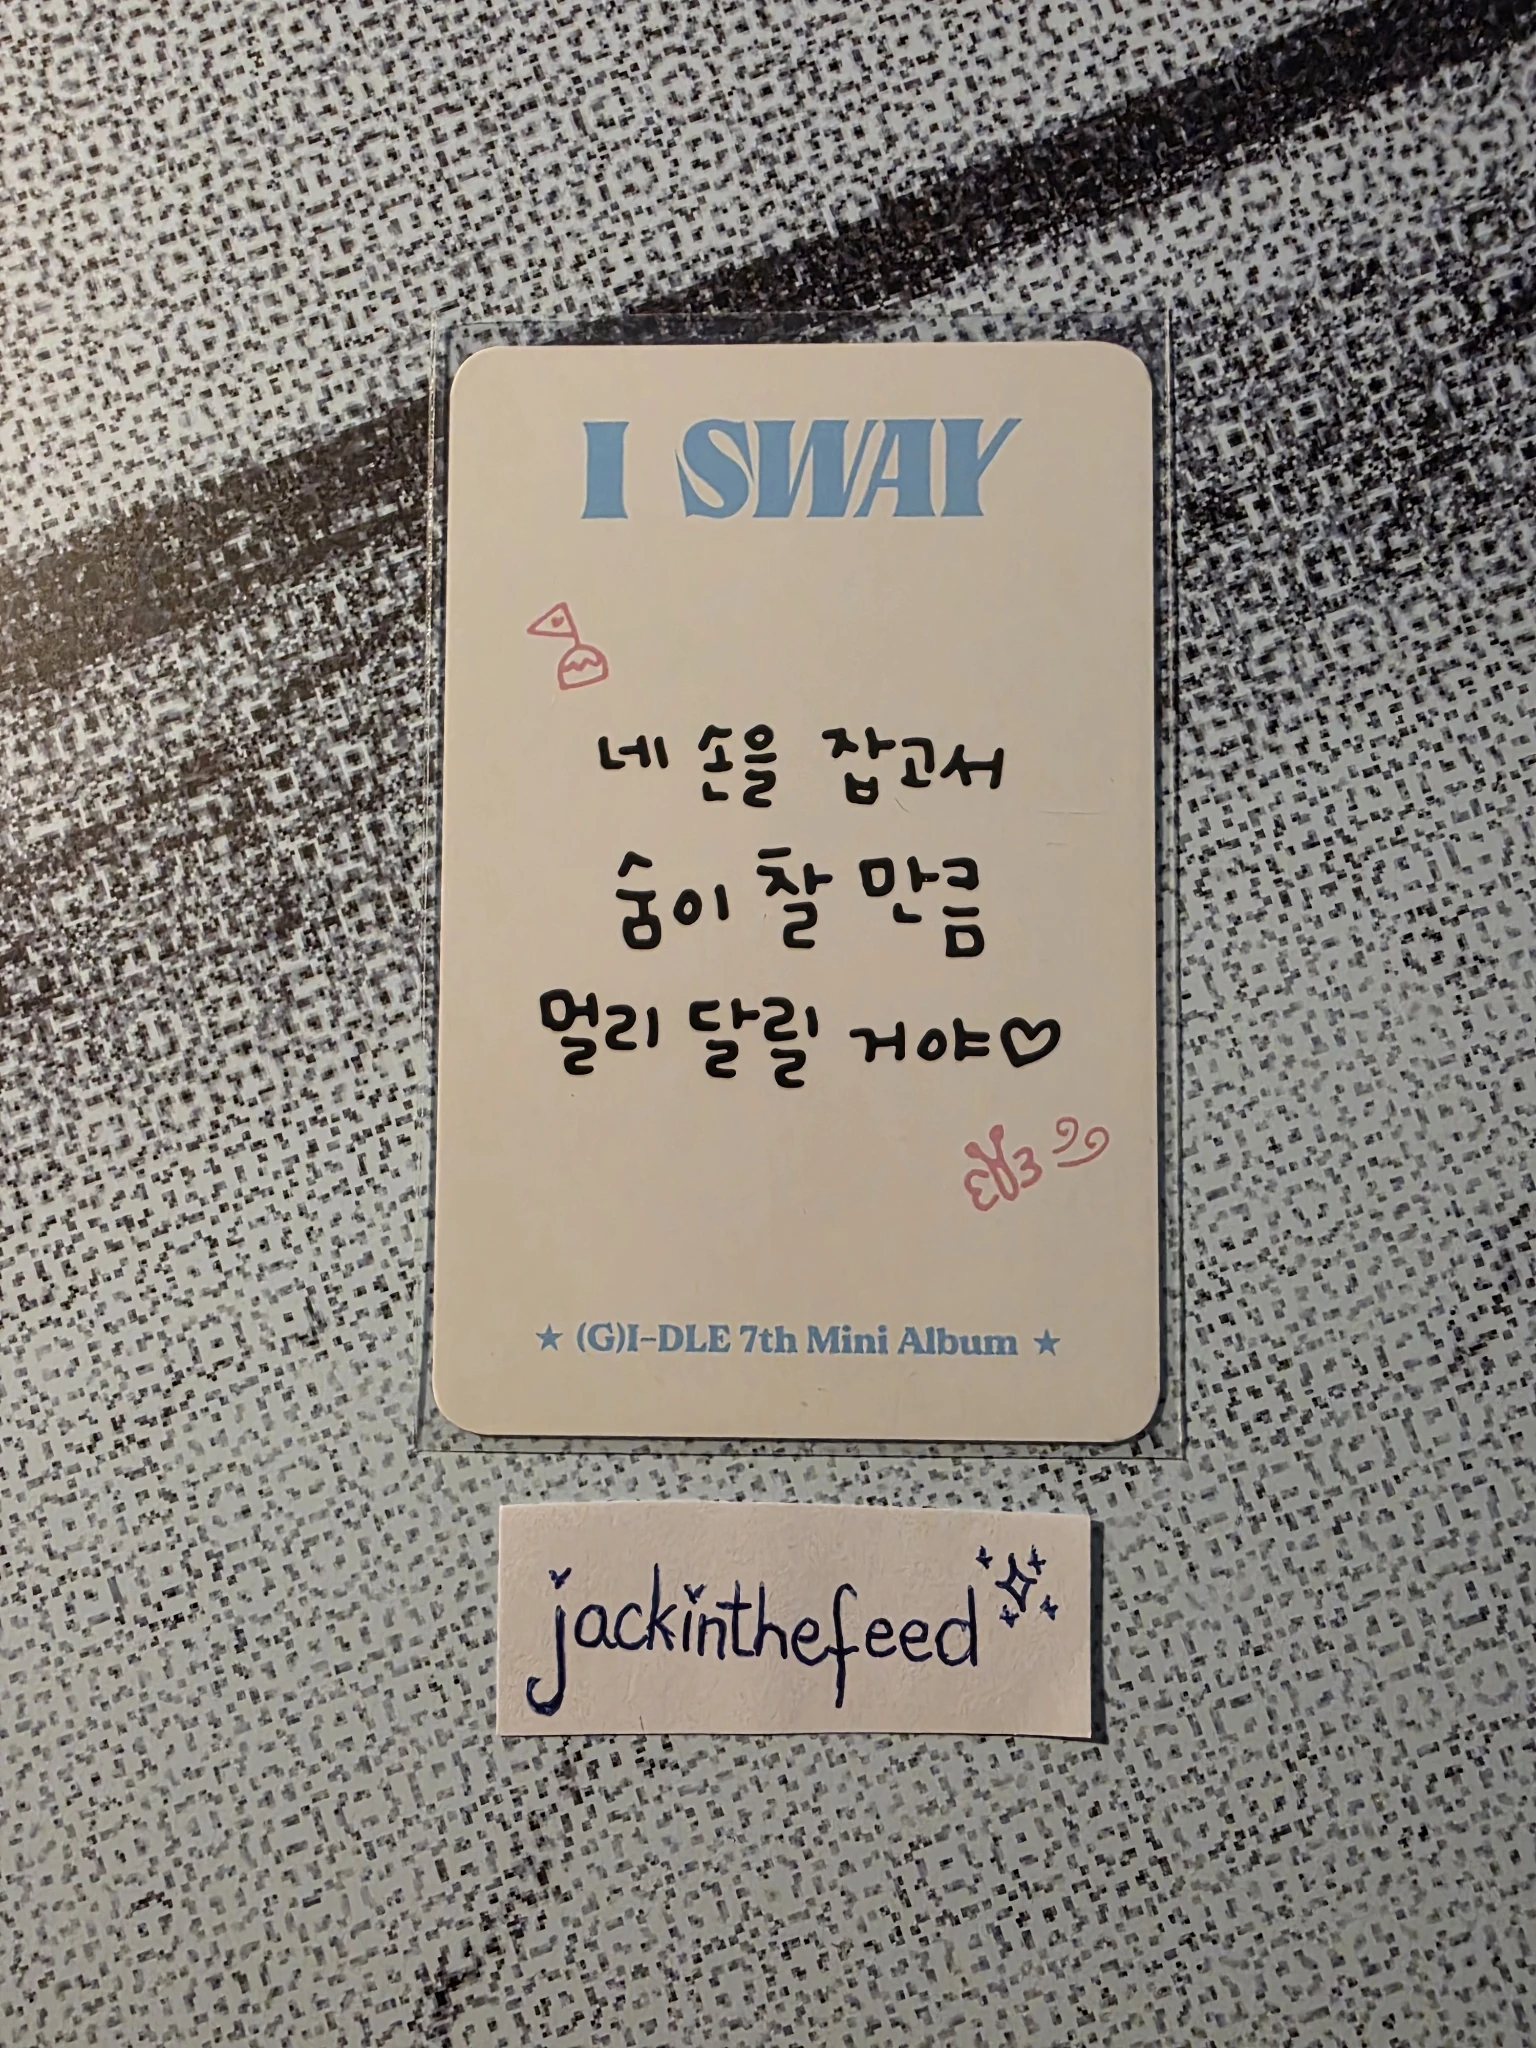 I SWAY
네 손을 잡고서
숨이 찰 만큼
멀리 달릴 거야♡
★ (G)I-DLE 7th Mini Album ★
jackinthefeed